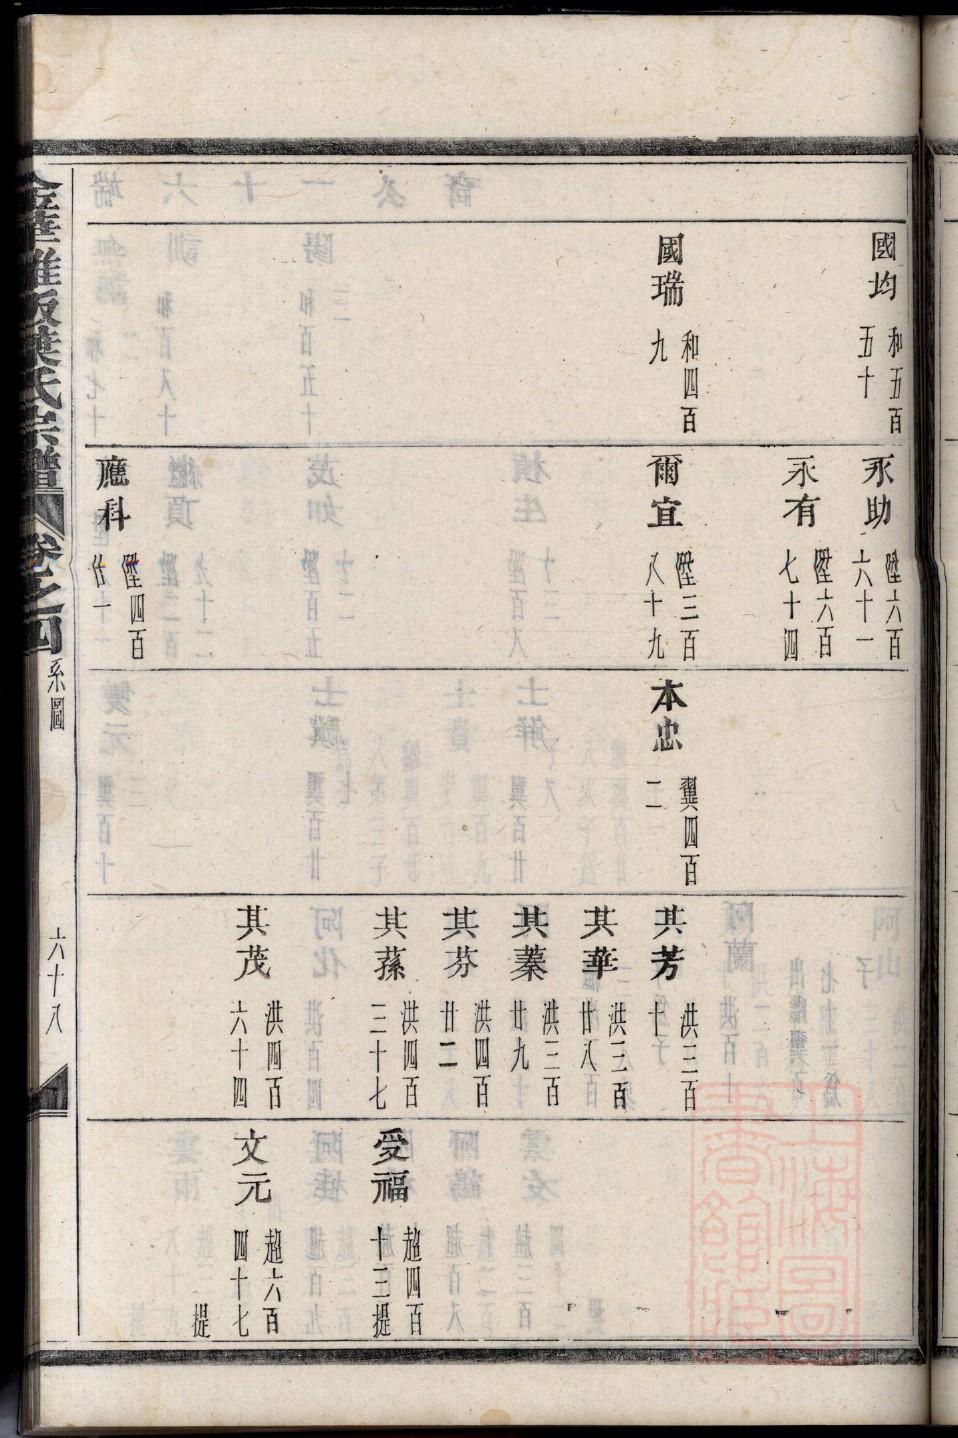 國均 和五百五十
國瑞 和四百九
永助 陞六百六十一
永有 陞六百七十四
爾宜 陞三百八十九
應科 陞四百一
本忠 翼四百二
其芳 洪三百十
其華 洪三百廿八
其蓁 洪三百廿九
其芬 洪四百廿二
其蓀 洪四百三十七
其茂 洪四百六十四
受福 超四百十三提
文元 超六百四十七提
葉氏宗譜 卷之四 系圖 六十八
上海圖書館藏